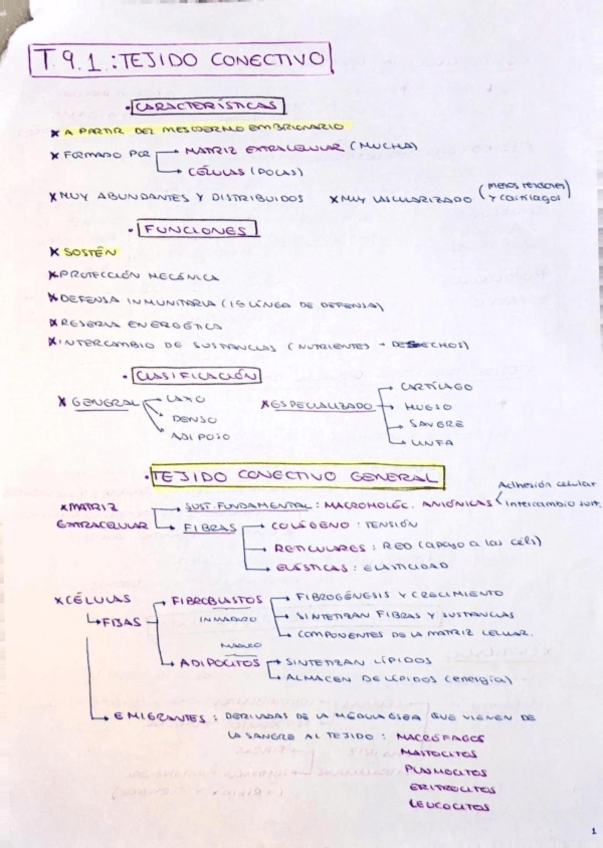 T.9.1.: TEJIDO CONECTIVO
· CARACTERÍSTICAS
x A PARTIR DEL MESODERMO EMBRIONARIO
x FORMADO POR → MATRIZ EXTRACELULAR (MUCHA)
→ CÉLULAS (POCAS)
x MUY ABUNDANTES Y DISTRIBUIDOS x MUY VASCULARIZADO (menos tendones
y cartílagos)
· FUNCIONES
x SOSTÉN
x PROTECCIÓN MECÁNICA
x DEFENSA INMUNITARIA (1ª LÍNEA DE DEFENSA)
x RESERVA ENERGÉTICA
x INTERCAMBIO DE SUSTANCIAS (NUTRIENTES - DESECHOS)
· CLASIFICACIÓN
x GENERAL → LAXO
DENSO
ADIPOSO
x ESPECIALIZADO → CARTÍLAGO
→ HUESO
→ SANGRE
→ LINFA
· TEJIDO CONECTIVO GENERAL
x MATRIZ EXTRACELULAR
→ SUST. FUNDAMENTAL : MACROMOLÉC. ANIÓNICAS < Adhesión celular
Intercambio sust.
→ FIBRAS → COLÁGENO : TENSIÓN
→ RETICULARES : RED (apoyo a las cels)
→ ELÁSTICAS : ELASTICIDAD
x CÉLULAS
→ FIJAS
→ FIBROBLASTOS → FIBROGÉNESIS Y CRECIMIENTO
INMADURO → SINTETIZAN FIBRAS Y SUSTANCIAS
→ COMPONENTES DE LA MATRIZ CELULAR.
MADURO
→ ADIPOCITOS → SINTETIZAN LÍPIDOS
→ ALMACEN DE LÍPIDOS (energía)
→ EMIGRANTES : DERIVADAS DE LA MÉDULA ÓSEA QUE VIENEN DE
LA SANGRE AL TEJIDO : MACRÓFAGOS
MASTOCITOS
PLASMOCITOS
ERITROCITOS
LEUCOCITOS
1